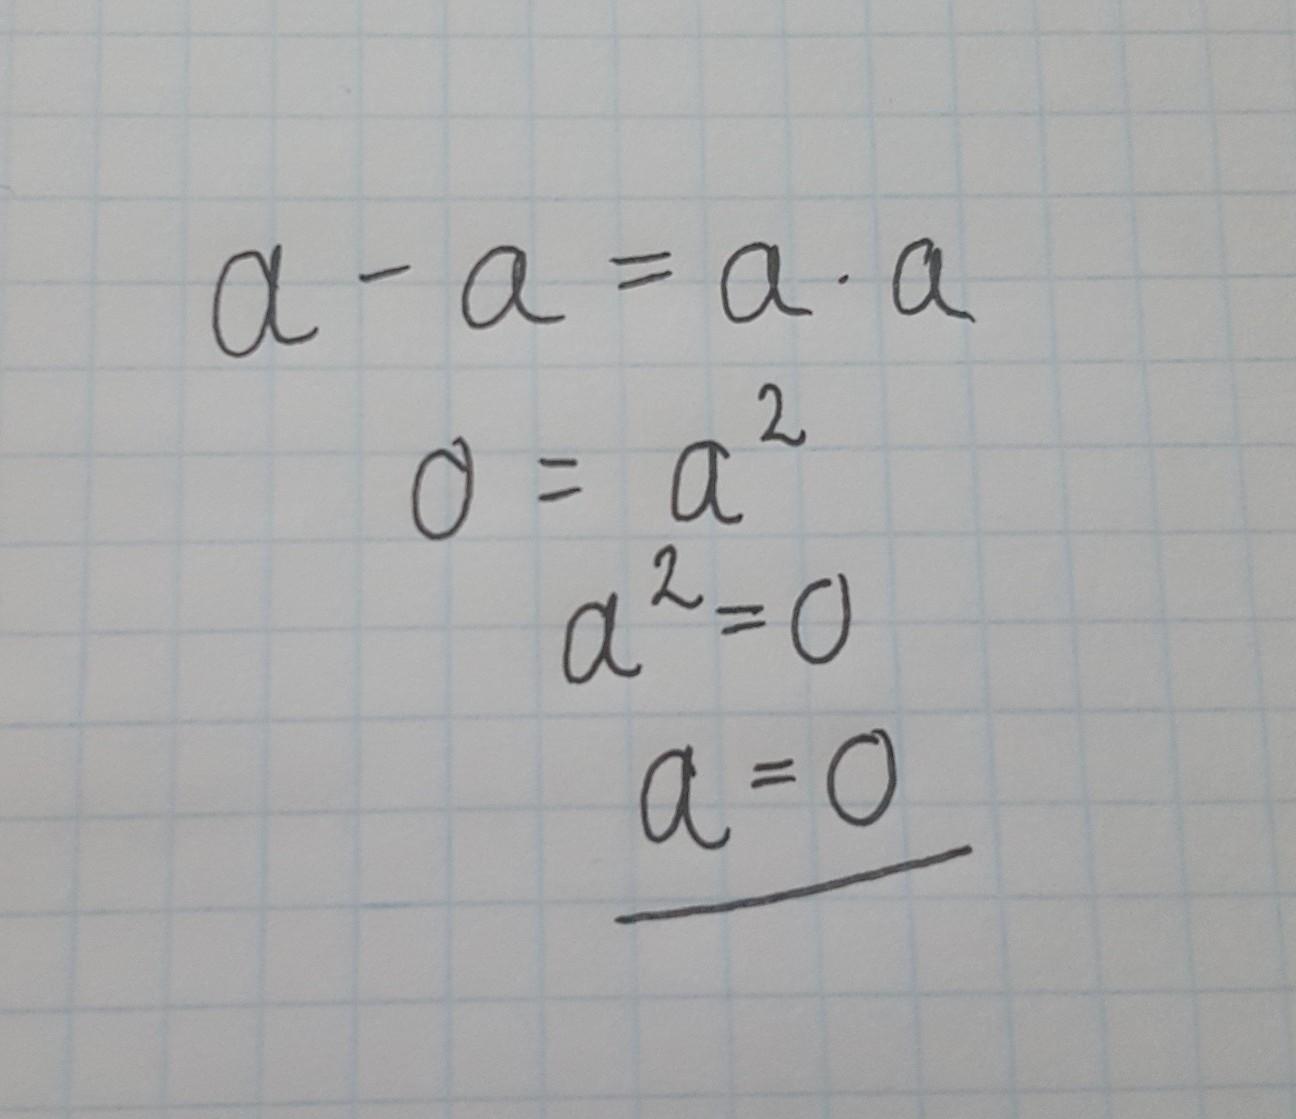 a - a = a · a
0 = a²
a² = 0
a = 0